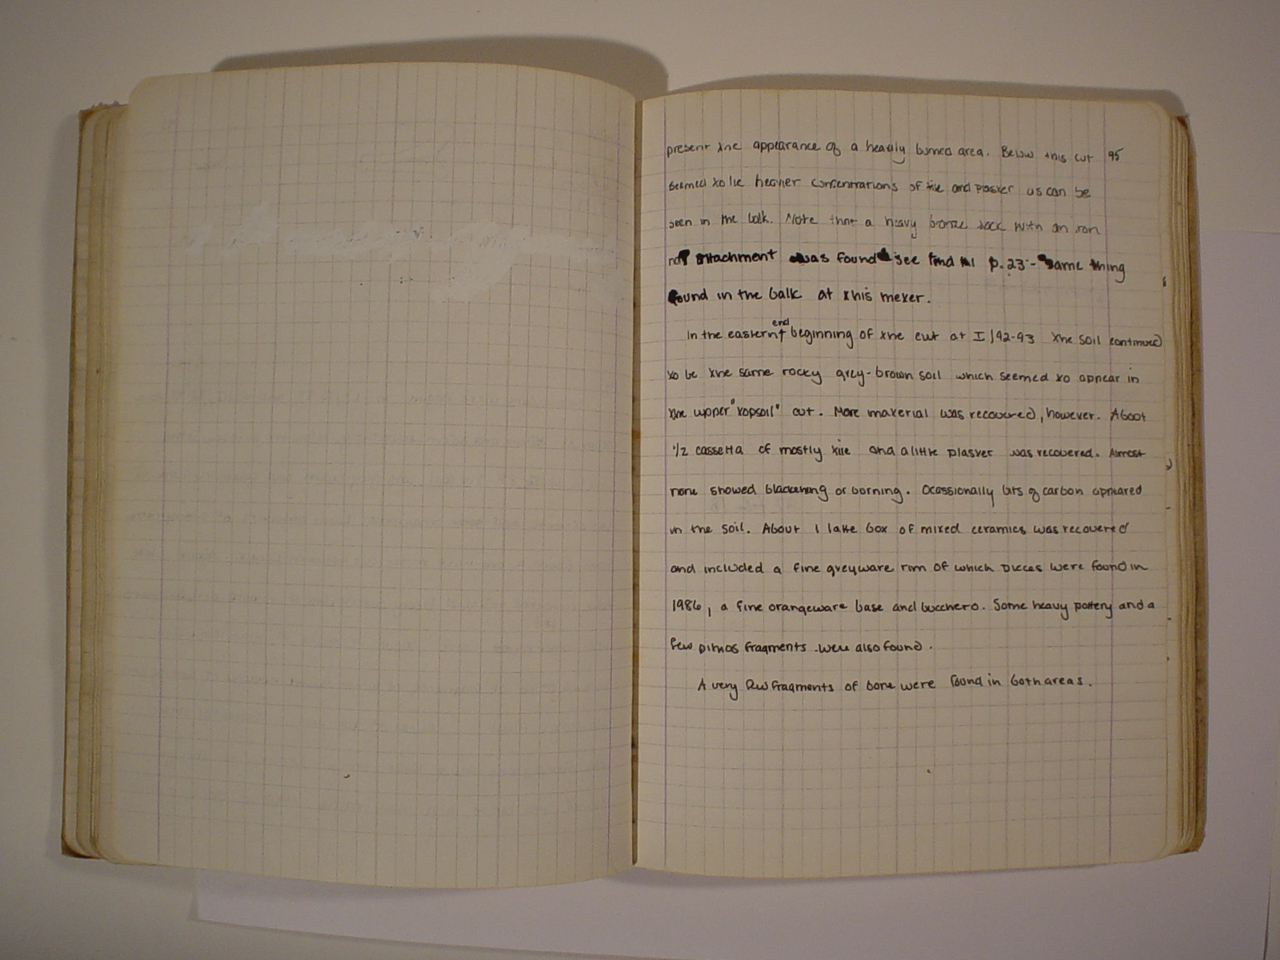 present the appearance of a heavily burned area. Below this cut 95
seemed to lie heavier concentrations of tile and plaster as can be
seen in the balk. Note that a heavy bronze tack with an iron
attachment was found see Find #1 p.23 - same thing
found in the balk at this meter.
In the eastern end beginning of the cut at I/92-93 the soil continued
to be the same rocky grey-brown soil which seemed to appear in
the upper "topsoil" cut. More material was recovered, however. About
1/2 cassetta of mostly tile and a little plaster was recovered. Almost
none showed blackening or burning. Ocassionally bits of carbon appeared
in the soil. About 1 lake box of mixed ceramics was recovered
and included a fine greyware rim of which pieces were found in
1986, a fine orangeware base and bucchero. Some heavy pottery and a
few pithos fragments were also found.
A very few fragments of bone were found in both areas.